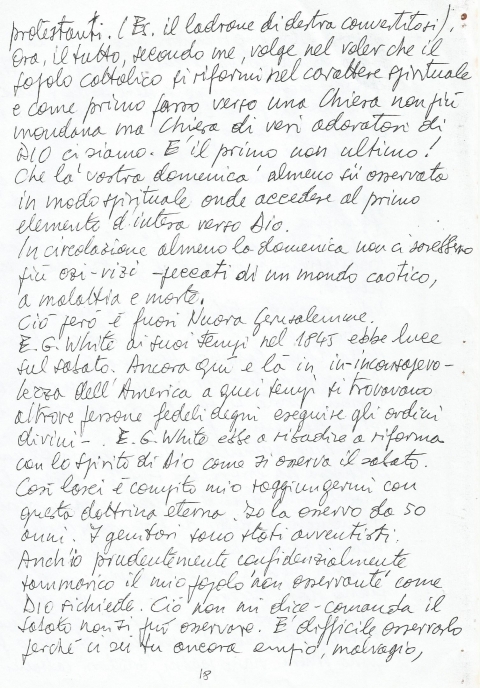 protestanti. (Es. il ladrone di destra convertitosi).
Ora, il tutto, secondo me, volge nel voler che il
popolo cattolico si riformi nel carattere spirituale
e come primo passo verso una Chiesa non più
mondana ma Chiesa di veri adoratori di
DIO ci siamo. E' il primo non ultimo!
Che la 'vostra domenica' almeno sii osservata
in modo spirituale onde accedere al primo
elemento d'intesa verso Dio.
In circolazione almeno la domenica non ci sarebbero
più ozi-vizi-peccati di un mondo caotico,
a malattia e morte.
Ciò però è fuori Nuova Gerusalemme.
E.G. White ai suoi tempi nel 1845 ebbe luce
sul sabato. Ancora qui e là in in-inconsapevo-
lezza dell'America a quei tempi si trovavano
altrove persone fedeli degni eseguire gli ordini
divini-. E.G. White ebbe a ribadire a riforma
con lo spirito di Dio come si osserva il sabato.
Così è compito mio raggiungermi con
questa dottrina eterna. Io la osservo da 50
anni. I genitori sono stati avventisti.
Anch'io prudentemente confidenzialmente
rammarico il mio popolo non osservante come
DIO richiede. Ciò non mi dice-comanda il
sabato non si può osservare. E' difficile osservarlo
perché ci sei tu ancora empio, malvagio,
18